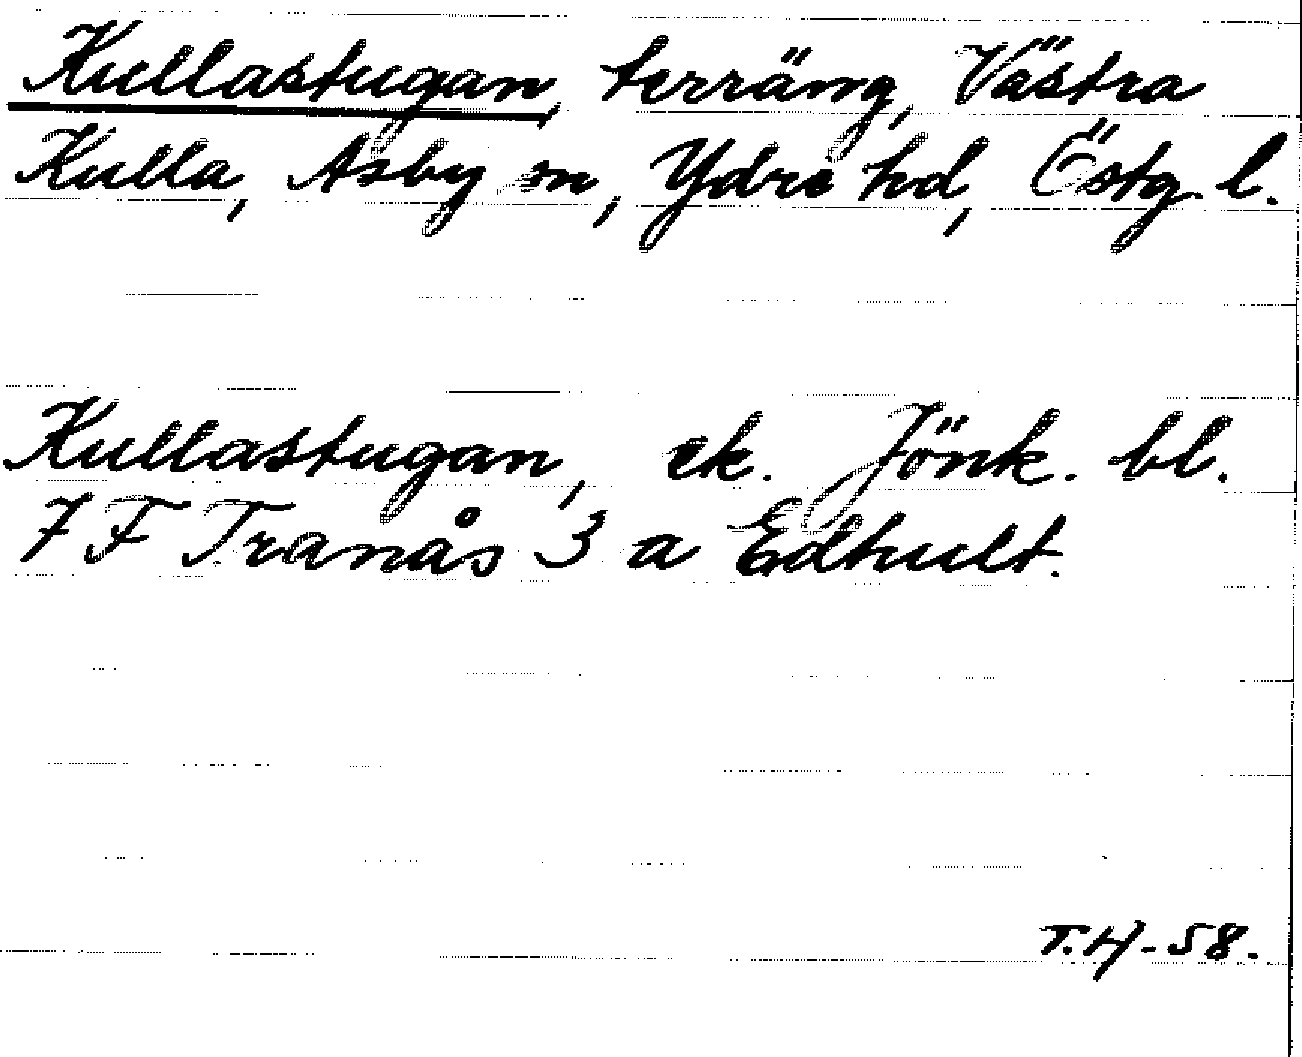 Kullastugan, terräng, Västra
Kulla, Asby sn, Ydre hd, Östg. l.
Kullastugan, ek. Jönk. bl.
7 F Tranås 3 a Edhult.
T.H-58.